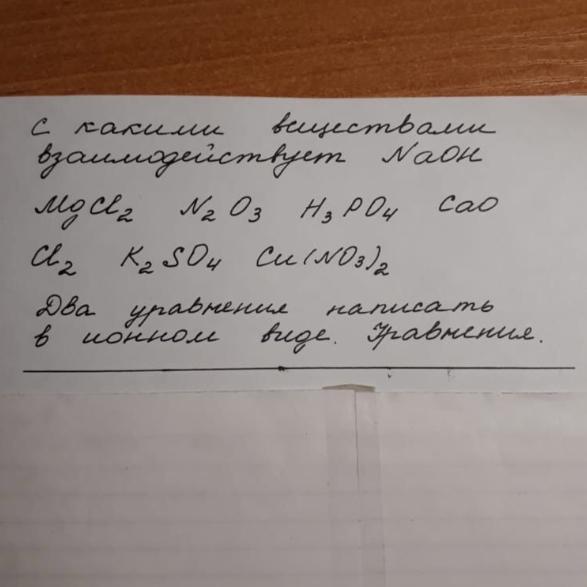 С какими веществами
взаимодействует NaOH
MgCl₂ N₂O₃ H₃PO₄ CaO
Cl₂ K₂SO₄ Cu(NO₃)₂
Два уравнения написать
в ионном виде. Уравнения.